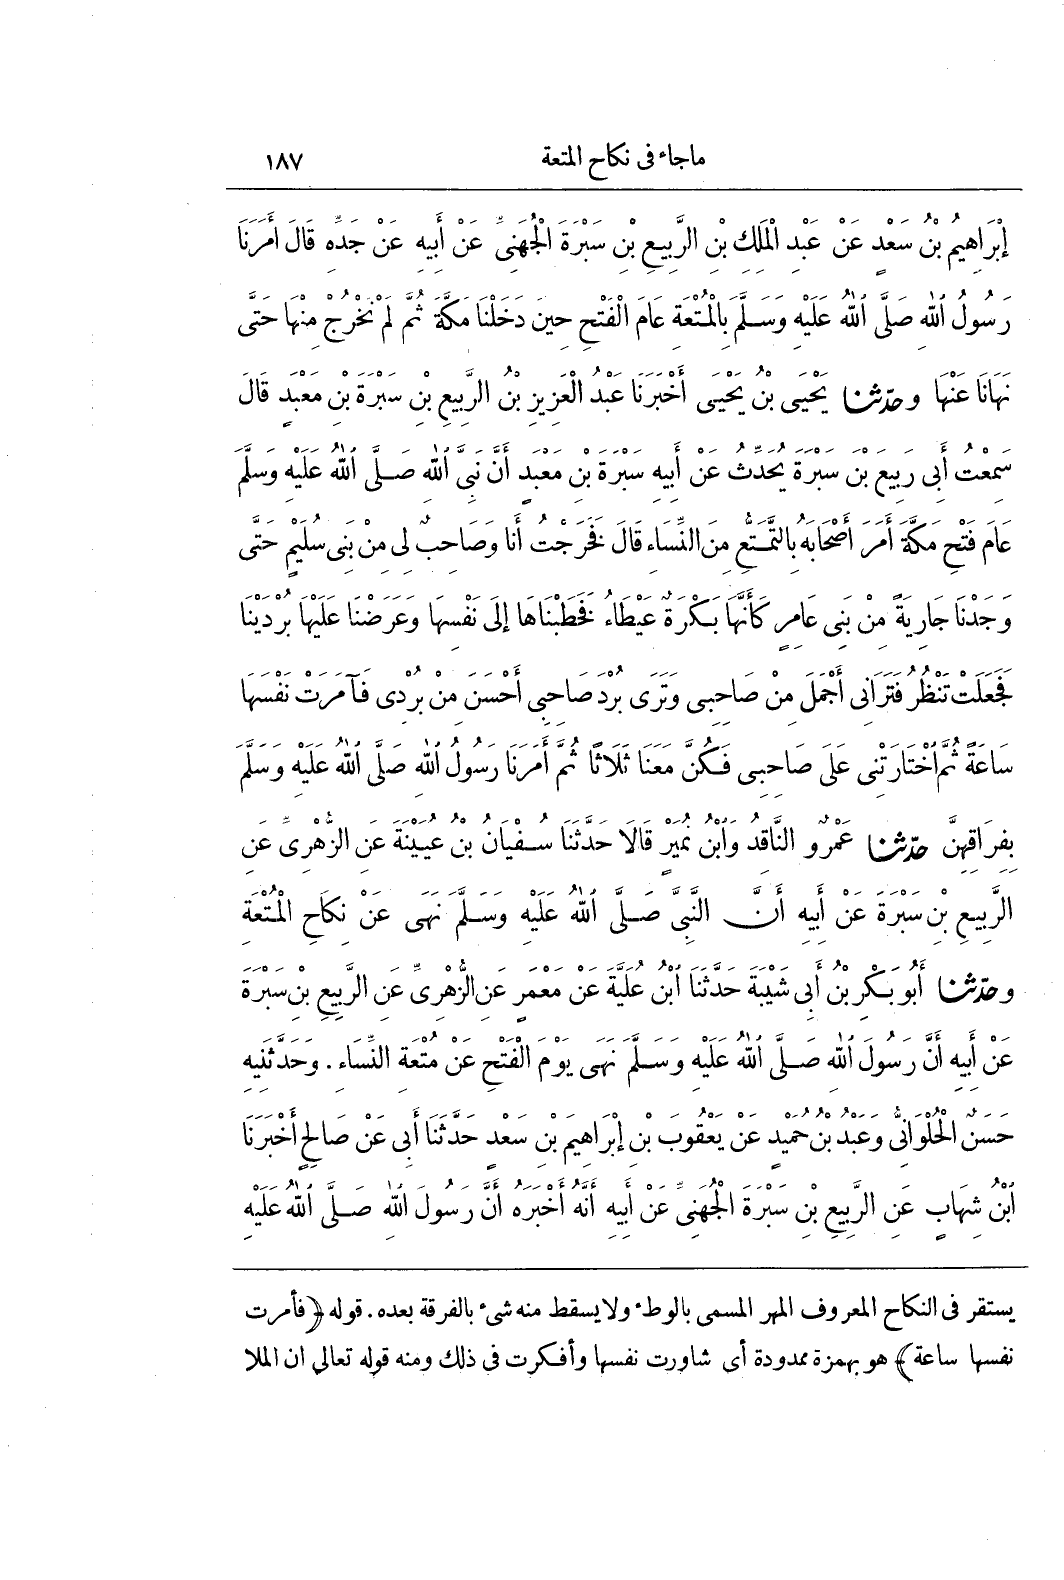 ماجاء فى نكاح المتعة ١٨٧
إِبْرَاهِيمُ بْنُ سَعْدٍ عَنْ عَبْدِ الْمَلِكِ بْنِ الرَّبِيعِ بْنِ سَبْرَةَ الْجُهَنِىِّ عَنْ أَبِيهِ عَنْ جَدِّهِ قَالَ أَمَرَنَا
رَسُولُ اللهِ صَلَّى اللهُ عَلَيْهِ وَسَلَّمَ بِالْمُتْعَةِ عَامَ الْفَتْحِ حِينَ دَخَلْنَا مَكَّةَ ثُمَّ لَمْ نَخْرُجْ مِنْهَا حَتَّى
نَهَانَا عَنْهَا وحَدَّثَنَا يَحْيَى بْنُ يَحْيَى أَخْبَرَنَا عَبْدُ الْعَزِيزِ بْنُ الرَّبِيعِ بْنِ سَبْرَةَ بْنِ مَعْبَدٍ قَالَ
سَمِعْتُ أَبِى رَبِيعَ بْنَ سَبْرَةَ يُحَدِّثُ عَنْ أَبِيهِ سَبْرَةَ بْنِ مَعْبَدٍ أَنَّ نَبِىَّ اللهِ صَلَّى اللهُ عَلَيْهِ وَسَلَّمَ
عَامَ فَتْحِ مَكَّةَ أَمَرَ أَصْحَابَهُ بِالتَّمَتُّعِ مِنَ النِّسَاءِ قَالَ فَخَرَجْتُ أَنَا وَصَاحِبٌ لِى مِنْ بَنِى سُلَيْمٍ حَتَّى
وَجَدْنَا جَارِيَةً مِنْ بَنِى عَامِرٍ كَأَنَّهَا بَكْرَةٌ عَيْطَاءُ فَخَطَبْنَاهَا إِلَى نَفْسِهَا وَعَرَضْنَا عَلَيْهَا بُرْدَيْنَا
فَجَعَلَتْ تَنْظُرُ فَتَرَانِى أَجْمَلَ مِنْ صَاحِبِى وَتَرَى بُرْدَ صَاحِبِى أَحْسَنَ مِنْ بُرْدِى فَآمَرَتْ نَفْسَهَا
سَاعَةً ثُمَّ اخْتَارَتْنِى عَلَى صَاحِبِى فَكُنَّ مَعَنَا ثَلَاثًا ثُمَّ أَمَرَنَا رَسُولُ اللهِ صَلَّى اللهُ عَلَيْهِ وَسَلَّمَ
بِفِرَاقِهِنَّ حَدَّثَنَا عَمْرٌو النَّاقِدُ وَابْنُ نُمَيْرٍ قَالَا حَدَّثَنَا سُفْيَانُ بْنُ عُيَيْنَةَ عَنِ الزُّهْرِىِّ عَنِ
الرَّبِيعِ بْنِ سَبْرَةَ عَنْ أَبِيهِ أَنَّ النَّبِىَّ صَلَّى اللهُ عَلَيْهِ وَسَلَّمَ نَهَى عَنْ نِكَاحِ الْمُتْعَةِ
وحَدَّثَنَا أَبُو بَكْرِ بْنُ أَبِى شَيْبَةَ حَدَّثَنَا ابْنُ عُلَيَّةَ عَنْ مَعْمَرٍ عَنِ الزُّهْرِىِّ عَنِ الرَّبِيعِ بْنِ سَبْرَةَ
عَنْ أَبِيهِ أَنَّ رَسُولَ اللهِ صَلَّى اللهُ عَلَيْهِ وَسَلَّمَ نَهَى يَوْمَ الْفَتْحِ عَنْ مُتْعَةِ النِّسَاءِ . وَحَدَّثَنِيهِ
حَسَنٌ الْحُلْوَانِىُّ وَعَبْدُ بْنُ حُمَيْدٍ عَنْ يَعْقُوبَ بْنِ إِبْرَاهِيمَ بْنِ سَعْدٍ حَدَّثَنَا أَبِى عَنْ صَالِحٍ أَخْبَرَنَا
ابْنُ شِهَابٍ عَنِ الرَّبِيعِ بْنِ سَبْرَةَ الْجُهَنِىِّ عَنْ أَبِيهِ أَنَّهُ أَخْبَرَهُ أَنَّ رَسُولَ اللهِ صَلَّى اللهُ عَلَيْهِ
يستقر فى النكاح المعروف المهر المسمى بالوطء ولا يسقط منه شىء بالفرقة بعده . قوله ﴿فأمرت
نفسها ساعة﴾ هو بهمزة ممدودة أى شاورت نفسها وأفكرت فى ذلك ومنه قوله تعالى ان الملا